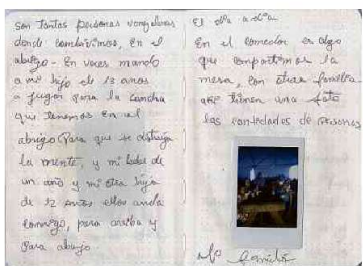 son tantas personas
donde combivimos, En el
abuigo - En veces mando
a mi hijo de 12 anos
a jugar para la cancha
que tenemos En el
abuigo Para que se distraiga
la mente, y mi bebe de
un año y mi otra hija
de 12 años ellos anda
comigo, para arriba y
para abajo..
El día a día
En el comedor es algo
que compartimos la
mesa, con otras familia
que tienen una
las cantidades de personas